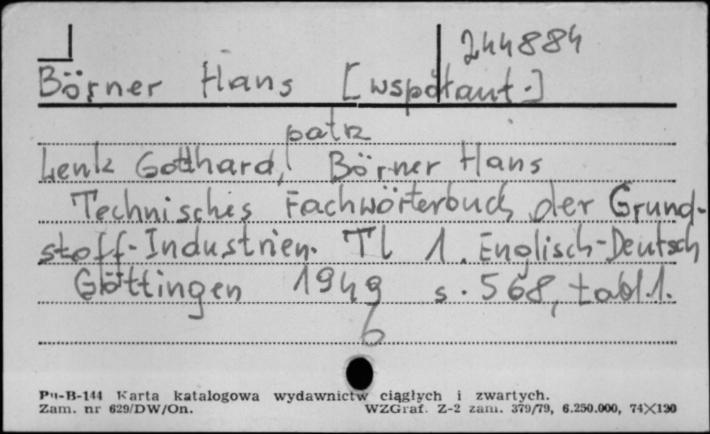 244884
Börner Hans [współaut.]
patrz
Lenk Gotthard, Börner Hans
Technisches Fachwörterbuch der Grund-
stoff-Industrien. Tl 1. Englisch-Deutsch
Göttingen 1949 s. 568, tabl.1.
6
Pu-B-144 Karta katalogowa wydawnictw ciągłych i zwartych.
Zam. nr 629/DW/On. WZGraf. Z-2 zam. 379/79, 6.250.000, 74×120